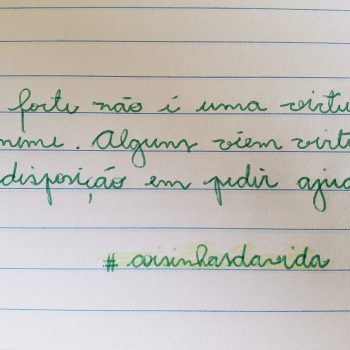 forte não é uma virtu
nime. Alguns vêem virtu
disposição em pedir ajud
#coisinhasdavida